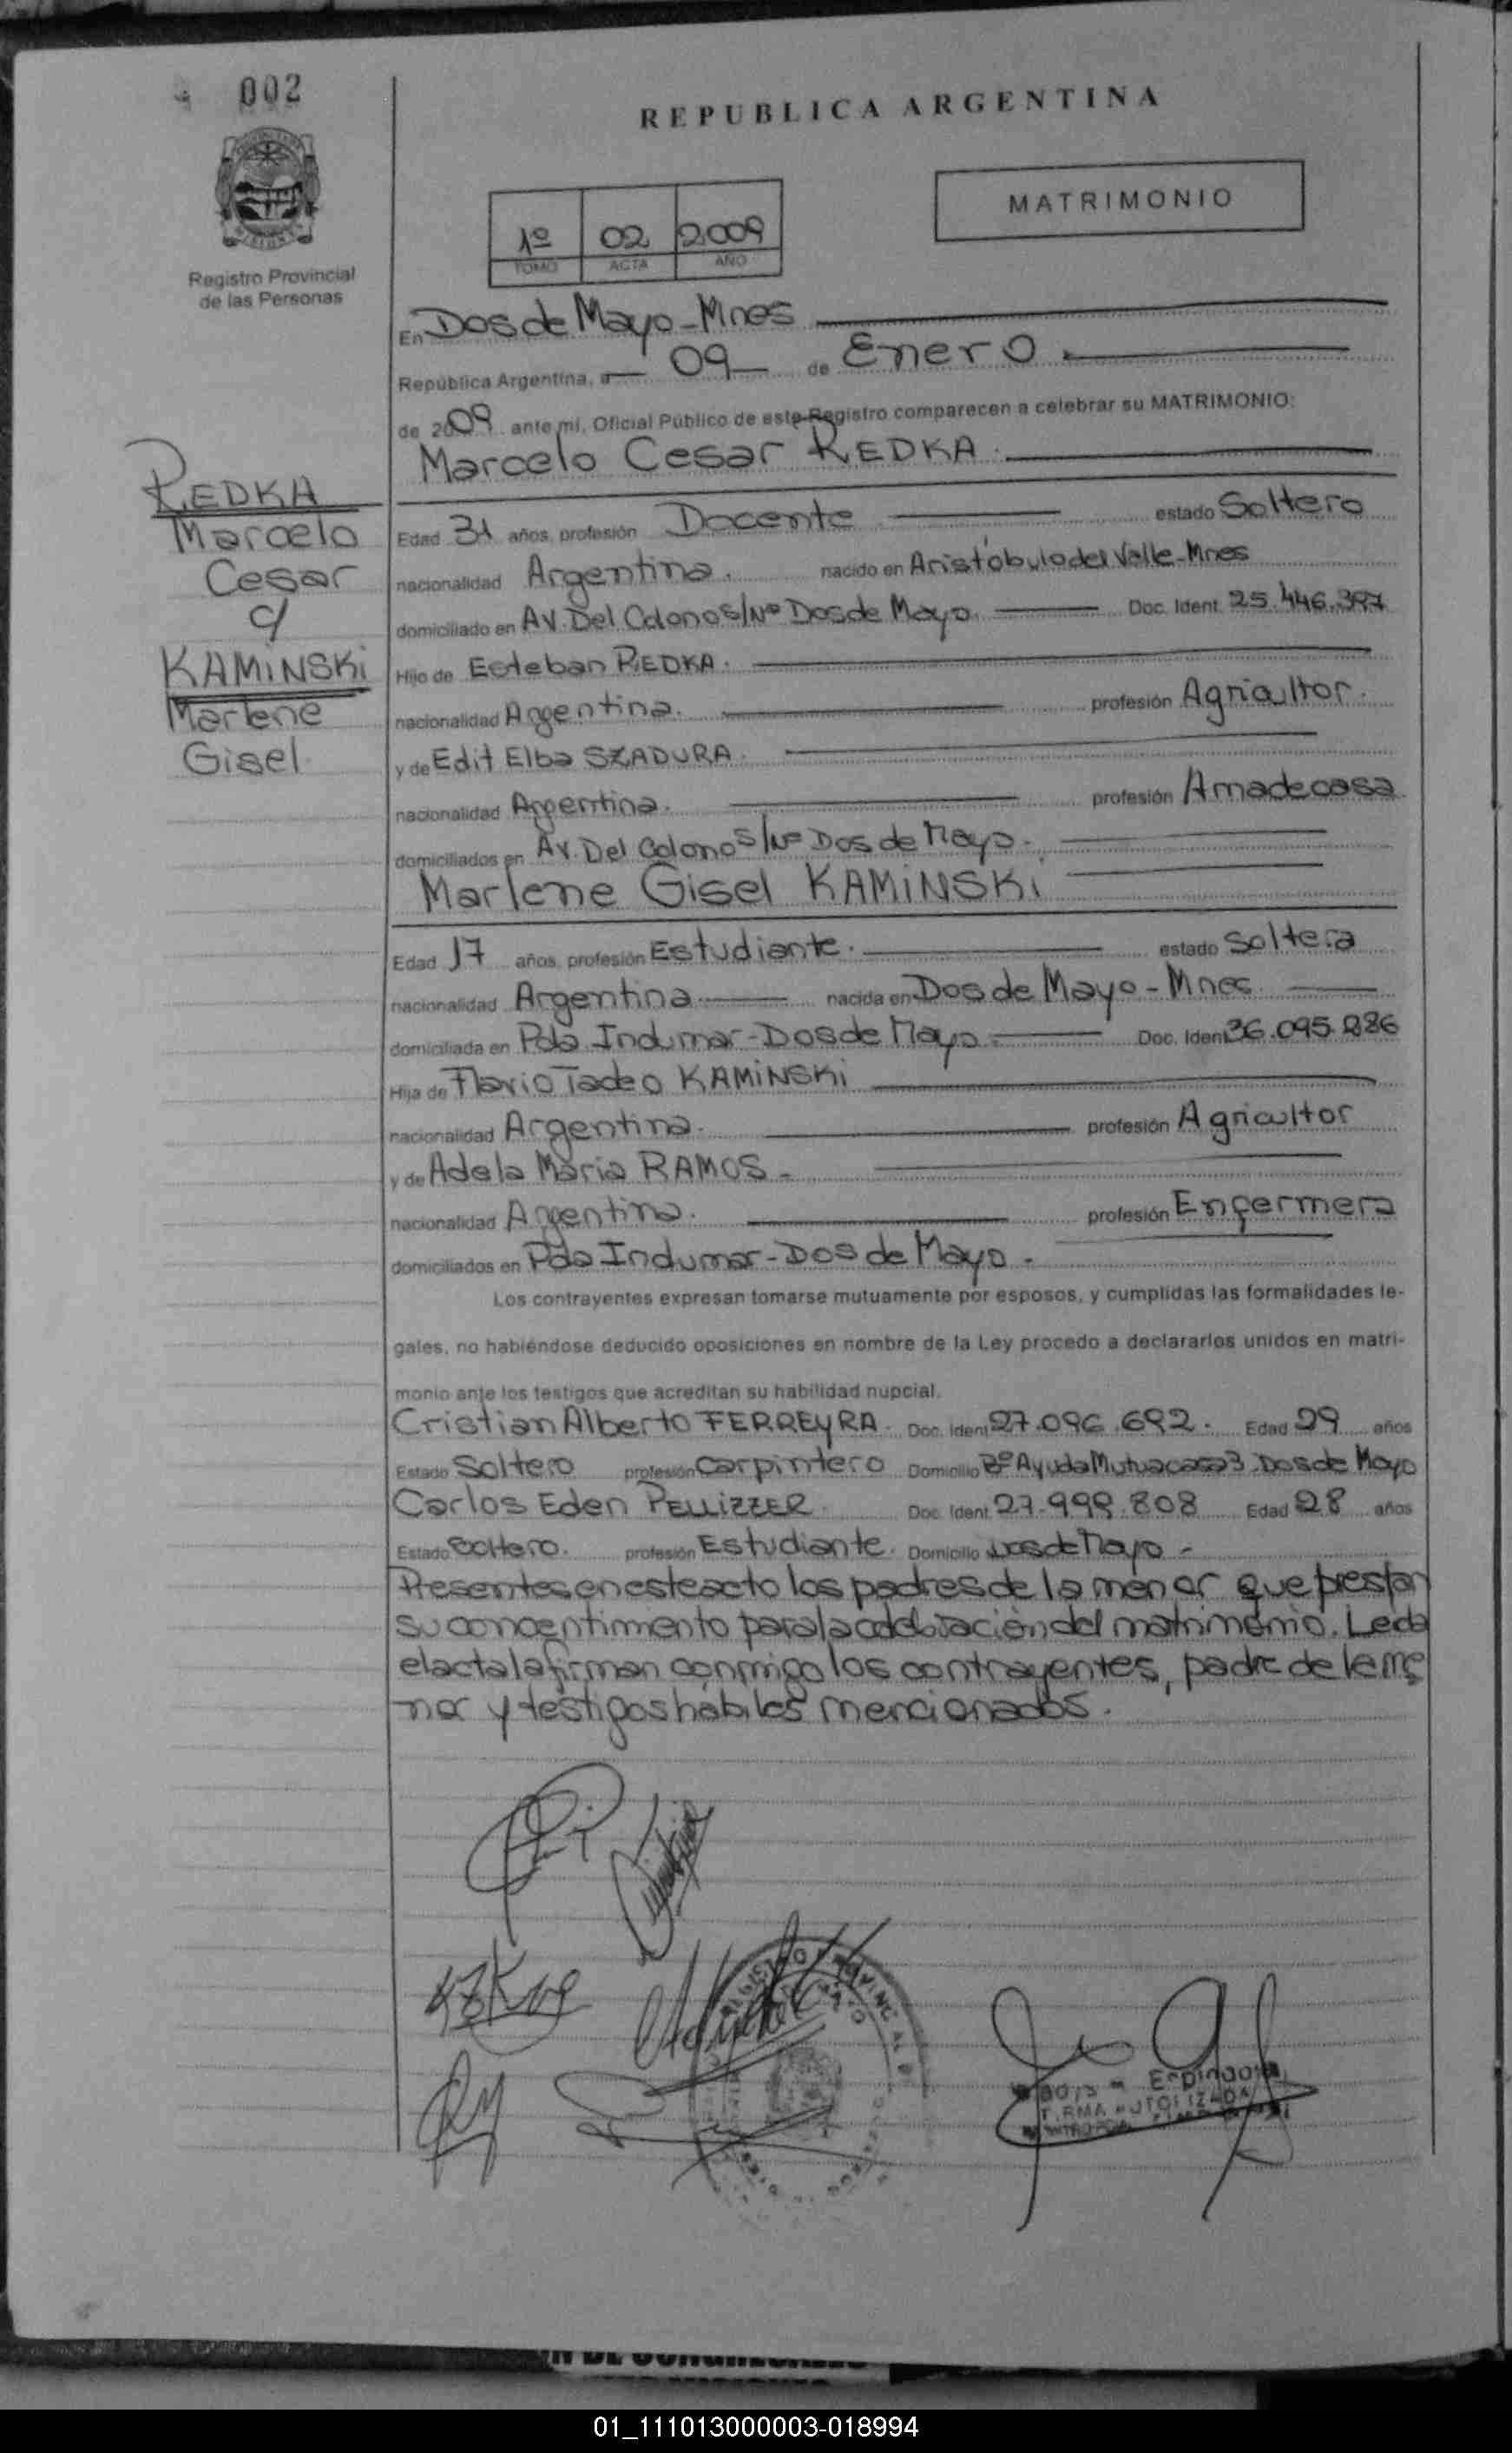 002
REPUBLICA ARGENTINA
MATRIMONIO
1º 02 2009
TOMO ACTA AÑO
Registro Provincial
de las Personas
En Dos de Mayo - Mnes
República Argentina, a 09 de Enero
de 2009 ante mí, Oficial Público de este Registro comparecen a celebrar su MATRIMONIO:
Marcelo Cesar REDKA.
REDKA
Marcelo
Cesar
c/
KAMINSKi
Marlene
Gisel.
Edad 31 años, profesión Docente estado Soltero
nacionalidad Argentina. nacido en Aristóbulo del Valle - Mnes
domiciliado en AV. Del Colono S/Nº Dos de Mayo. Doc. Ident. 25.446.397
Hijo de Esteban REDKA.
nacionalidad Argentina. profesión Agricultor.
y de Edit Elba SZADURA.
nacionalidad Argentina. profesión Ama de casa
domiciliados en AV. Del Colono S/Nº Dos de Mayo.
Marlene Gisel KAMiNSKi
Edad 17 años, profesión Estudiante. estado Soltera
nacionalidad Argentina nacida en Dos de Mayo - Mnes
domiciliada en Pda Indumar - Dos de Mayo. Doc. Ident. 36.095.886
Hija de Flavio Tadeo KAMiNSKi
nacionalidad Argentina. profesión Agricultor
y de Adela Maria RAMOS -
nacionalidad Argentina. profesión Enfermera
domiciliados en Pda Indumar - Dos de Mayo -
Los contrayentes expresan tomarse mutuamente por esposos, y cumplidas las formalidades le-
gales, no habiéndose deducido oposiciones en nombre de la Ley procedo a declararlos unidos en matri-
monio ante los testigos que acreditan su habilidad nupcial.
Cristian Alberto FERREyRA. Doc. Ident. 27.096.692. Edad 29 años
Estado Soltero profesión Carpintero Domicilio Bº Ayuda Mutua casa 3 Dos de Mayo
Carlos Eden PELLiZZER. Doc. Ident. 27.999.808 Edad 28 años
Estado Soltero. profesión Estudiante. Domicilio Dos de Mayo -
Presentes en este acto los padres de la menor que prestan
su concentimento para la celebración del matrimonio. Leida
el acta la firman conmigo los contrayentes, padre de la me
nor y testigos hábiles mencionados.
FIRMA AUTORIZADA
01_111013000003-018994